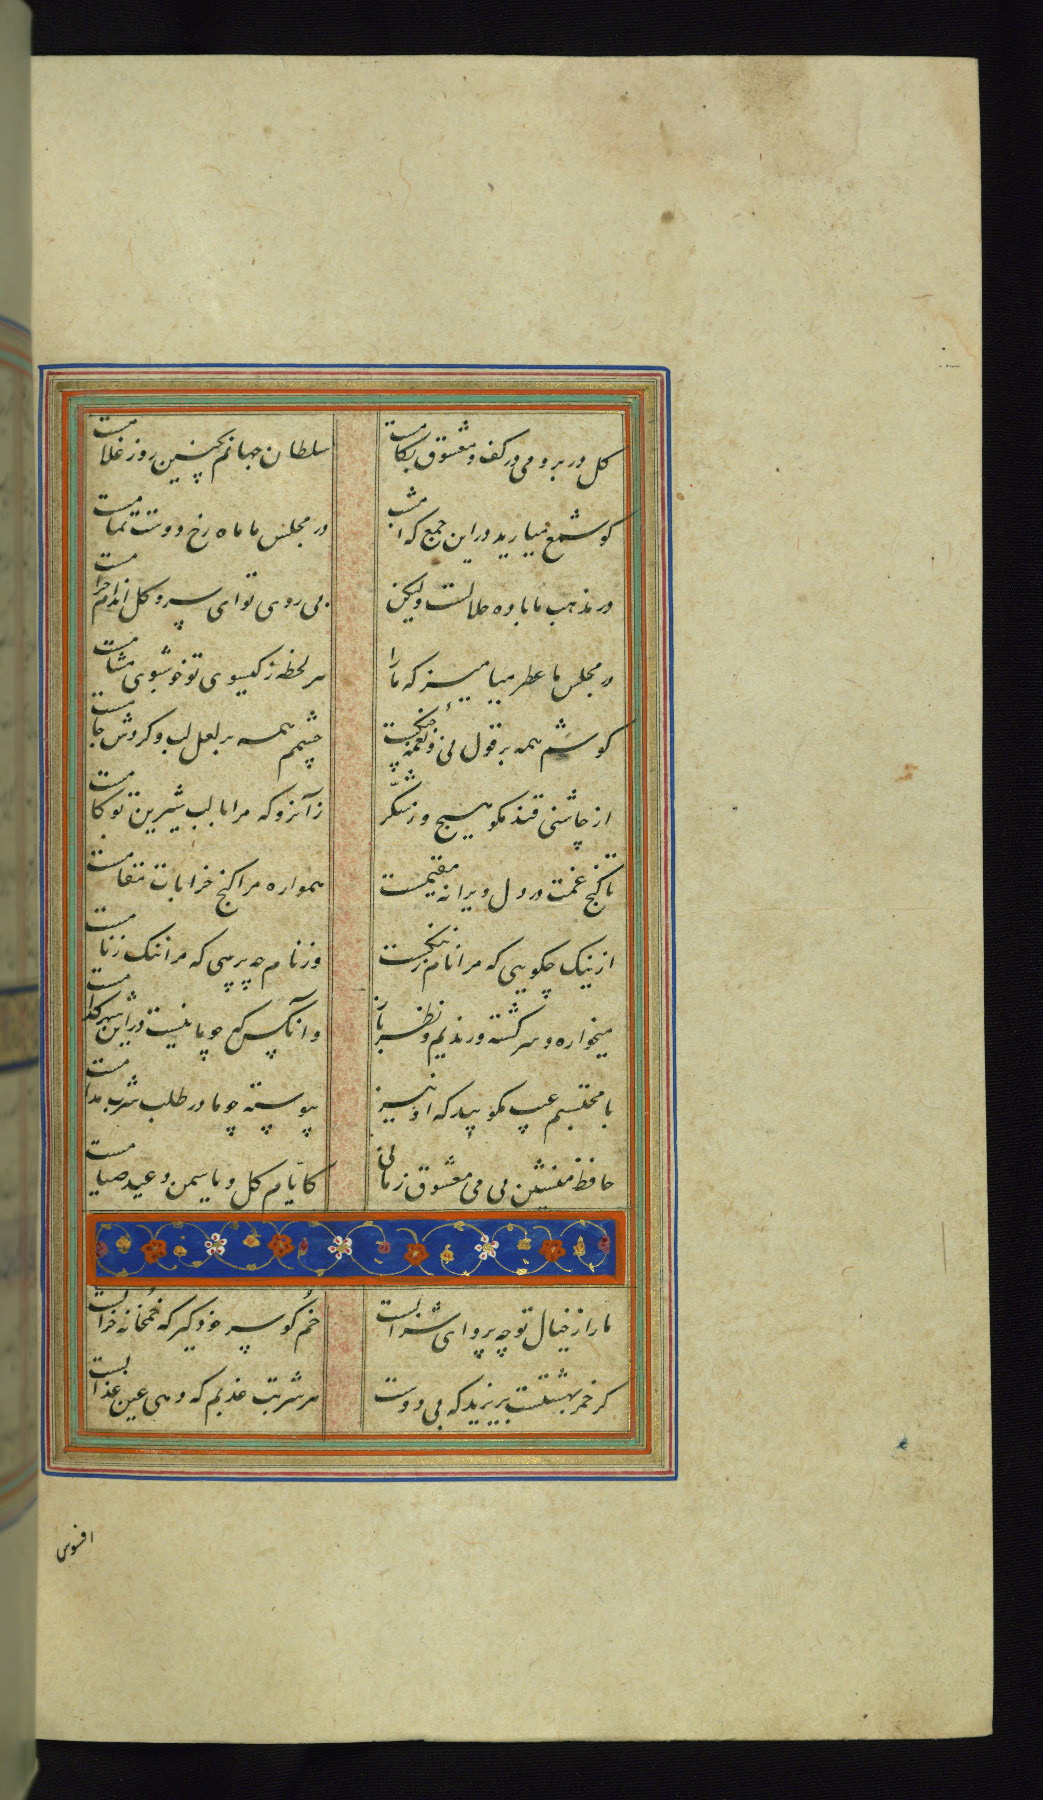 کل در بر و می در کف و معشوق بکامست سلطان جهانم بچنین روز غلامست
کو شمع میارید در این جمع که امشب در مجلس ما ماه رخ دوست تمامست
در مذهب ما باده حلالست ولیکن بی روی تو ای سرو کل اندام حرامست
در مجلس ما عطر میامیز که ما را هر لحظه ز کیسوی تو خوشبوی مشامست
کوشم همه بر قول نی و نغمهٔ چنکست چشمم همه بر لعل لب و کردش جامست
از چاشنی قند مکو هیچ و ز شکّر زآنرو که مرا با لب شیرین تو کامست
تا کنج غمت در دل ویرانه مقیمست همواره مرا کنج خرابات مقامست
از ننک چکویی که مرا نام ز ننکست وز نام چه پرسی که مرا ننک ز نامست
میخواره و سرکشته و رندیم و نظرباز وانکس که چو ما نیست در این شهر کدامست
با محتسبم عیب مکویید که او نیز پیوسته چو ما در طلب شرب مدامست
حافظ منشین بی می و معشوق زمانی کایّام کل و یاسمن و عید صیامست
ما را ز خیال تو چه پروای شرابست خم کو سر خود کیر که خمخانه خرابست
کر خمر بهشتست بریزید که بی دوست هر شربت عذبم که دهی عین عذابست
افسوس